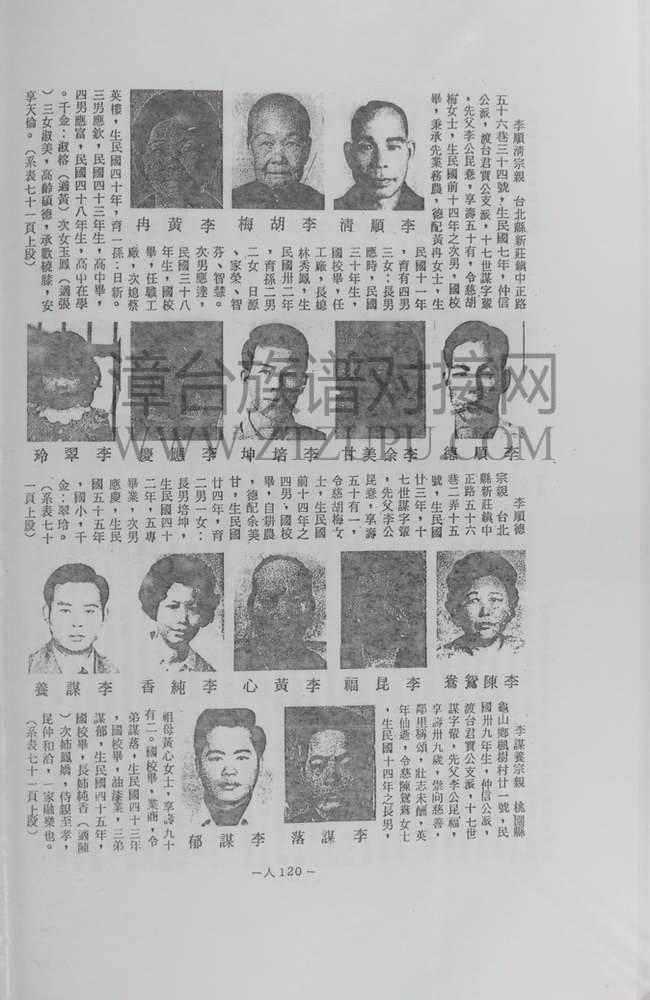 李順清宗親　台北縣新莊鎮中正路
五十六巷三十四號，生民國七年，仲信
公派，渡台君實公支派，十七世謀字輩
，先父李公昆悬，享壽五十有，令慈胡
梅女士，生民國前十四年之次男，國校
畢，秉承先業務農，德配黃冉女士，生
民國十一年
，育有四男
三女：長男
應時，民國
三十年生，
國校畢，任
工廠，長媳
林秀鳳，生
民國卅二年
，育孫二男
二女　日源
、家榮、智
芬、智慧。
次男應達，
民國三十八
年生，國校
畢，任職工
廠，次媳蔡
英樓，生民國四十年，育一孫：日新。
三男應欽，民國四十三年生，高中畢，
四男應富，民國四十八年生，高中在學
。千金：淑榕（適黃）次女玉鳳（適張
）三女淑美，高齡碩德，承歡樓膝，安
享天倫。（系表七十一頁上段）
李順清
李胡梅
李黃冉
李順德
李余美甘
李培坤
李應慶
李翠玲
李順德
宗親　台北
縣新莊鎮中
正路五十六
巷二弄十五
號，生民國
廿三年，十
七世謀字輩
，先父李公
昆悬，享壽
五十有一，
令慈胡梅女
士，生民國
前十四年之
四男，國校
畢，自耕農
，德配余美
甘，生民國
廿四年，育
二男一女：
長男培坤，
生民國四十
二年，五專
畢業，次男
應慶，生民
國五十五年
，國小，千
金：翠玲。
（系表七十
一頁上段）
李陳鴛鴦
李昆福
李黃心
李純香
李謀養
李謀養宗親　桃園縣
龜山鄉楓樹村廿一號，民
國卅九年生，仲信公派，
渡台君實公支派，十七世
謀字輩，先父李公昆福，
享壽卅九歲，崇向慈善，
鄰里稱頌，壯志未酬，英
年仙逝，令慈陳鴛鴦女士
，生民國十四年之長男，
祖母黃心女士，享壽九十
有二。國校畢，業商，令
弟謀落，生民國四十三年
，國校畢，油漆業，三弟
謀郁，生民國四十五年，
國校畢，長姉純香（適陳
）次姉鳳嬌，侍親至孝，
昆仲和洽，一家融樂也。
（系表七十一頁上段）
李謀落
李謀郁
－人120－
漳台族谱对接网
WWW.ZTZUPU.COM